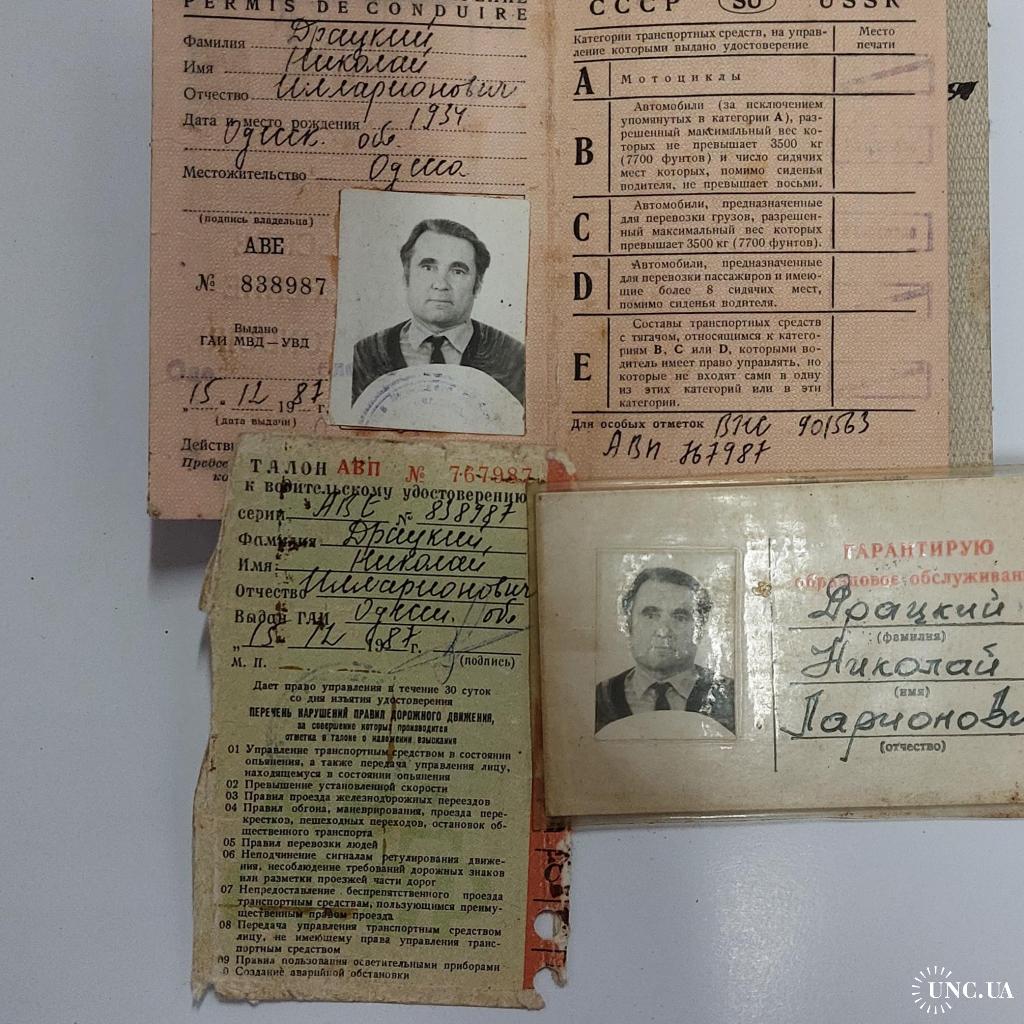 PERMIS DE CONDUIRE
Фамилия Драцкий
Имя Николай
Отчество Илларионович
Дата и место рождения 1934
Одесс. обл.
Местожительство Одесса
(подпись владельца)
АВЕ
№ 838987
Выдано
ГАИ МВД—УВД
„15. 12 1987 г.
(дата выдачи)
СССР SU USSR
Категории транспортных средств, на управ-
ление которыми выдано удостоверение
Место
печати
A Мотоциклы
B Автомобили (за исключением
упомянутых в категории А), раз-
решенный максимальный вес ко-
торых не превышает 3500 кг
(7700 фунтов) и число сидячих
мест которых, помимо сиденья
водителя, не превышает восьми.
C Автомобили, предназначенные
для перевозки грузов, разрешен-
ный максимальный вес которых
превышает 3500 кг (7700 фунтов).
D Автомобили, предназначенные
для перевозки пассажиров и имею-
щие более 8 сидячих мест,
помимо сиденья водителя.
E Составы транспортных средств
с тягачом, относящимся к катего-
риям В, С или D, которыми во-
дитель имеет право управлять, но
которые не входят сами в одну
из этих категорий или в эти
категории.
Для особых отметок ВНС 901563
АВП 767987
ТАЛОН АВП № 767987
к водительскому удостоверению
серии АВЕ № 838987
Фамилия Драцкий
Имя Николай
Отчество Илларионович
Выдан ГАИ Одесск. обл
„15 12 1987г.
М. П. (подпись)
Дает право управления в течение 30 суток
со дня изъятия удостоверения
ПЕРЕЧЕНЬ НАРУШЕНИЙ ПРАВИЛ ДОРОЖНОГО ДВИЖЕНИЯ,
за совершение которых производится
отметка в талоне о наложении взыскания
01 Управление транспортным средством в состоянии
опьянения, а также передача управления лицу,
находящемуся в состоянии опьянения
02 Превышение установленной скорости
03 Правил проезда железнодорожных переездов
04 Правил обгона, маневрирования, проезда пере-
крестков, пешеходных переходов, остановок об-
щественного транспорта
05 Правил перевозки людей
06 Неподчинение сигналам регулирования движе-
ния, несоблюдение требований дорожных знаков
или разметки проезжей части дорог
07 Непредоставление беспрепятственного проезда
транспортным средствам, пользующимся преиму-
щественным правом проезда
08 Передача управления транспортным средством
лицу, не имеющему права управления транс-
портным средством
09 Правил пользования осветительными приборами
0 Создание аварийной обстановки
ГАРАНТИРУЮ
образцовое обслуживани
Драцкий
(фамилия)
Николай
(имя)
Ларионови
(отчество)
UNC.UA